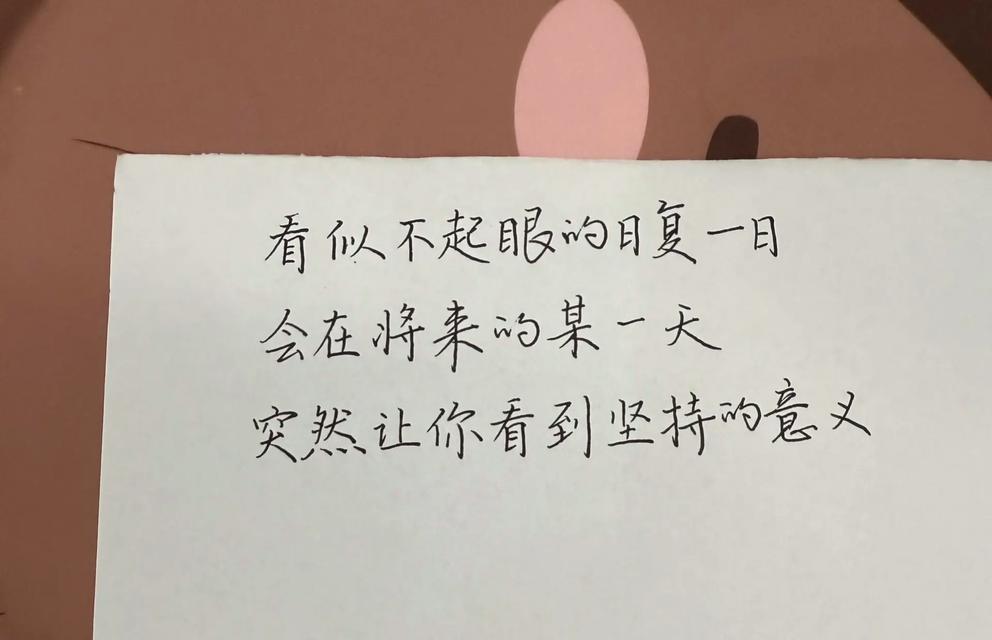 看似不起眼的日复一日
会在将来的某一天
突然让你看到坚持的意义